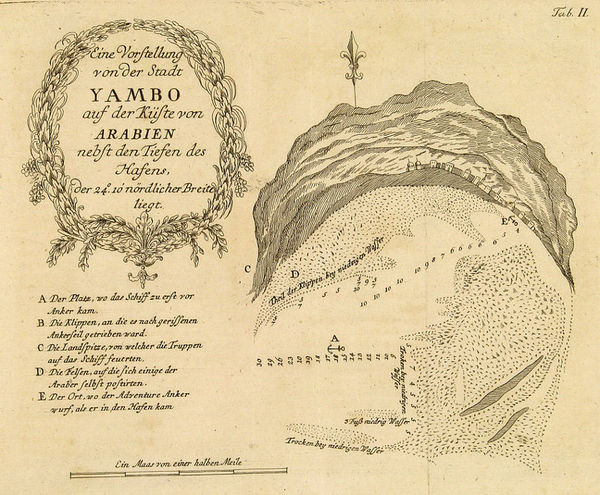 Tab. II.
Eine Vorstellung
von der Stadt
YAMBO
auf der Küste von
ARABIEN
nebst den Tiefen des
Hafens,
der 24.° 10 nördlicher Breite
liegt.
A Der Platz, wo das Schiff zu erst vor
Anker kam.
B Die Klippen, an die es nach gerissenen
Ankerseil getrieben ward.
C Die Landspitze, von welcher die Truppen
auf das Schiff feuerten.
D Die Felsen, auf die sich einige der
Araber selbst postirten.
E Der Ort, wo der Adventure Anker
wurf, als er in den Hafen kam
Ein Maas von einer halben Meile
C
D
E
der Klippen bey niedrigen Wasser
10 9 8 7 6 6 6 6 5
10 10 10 10
A
3 Fuß niedrig Wasser
Trocken bey niedrigen Wasser